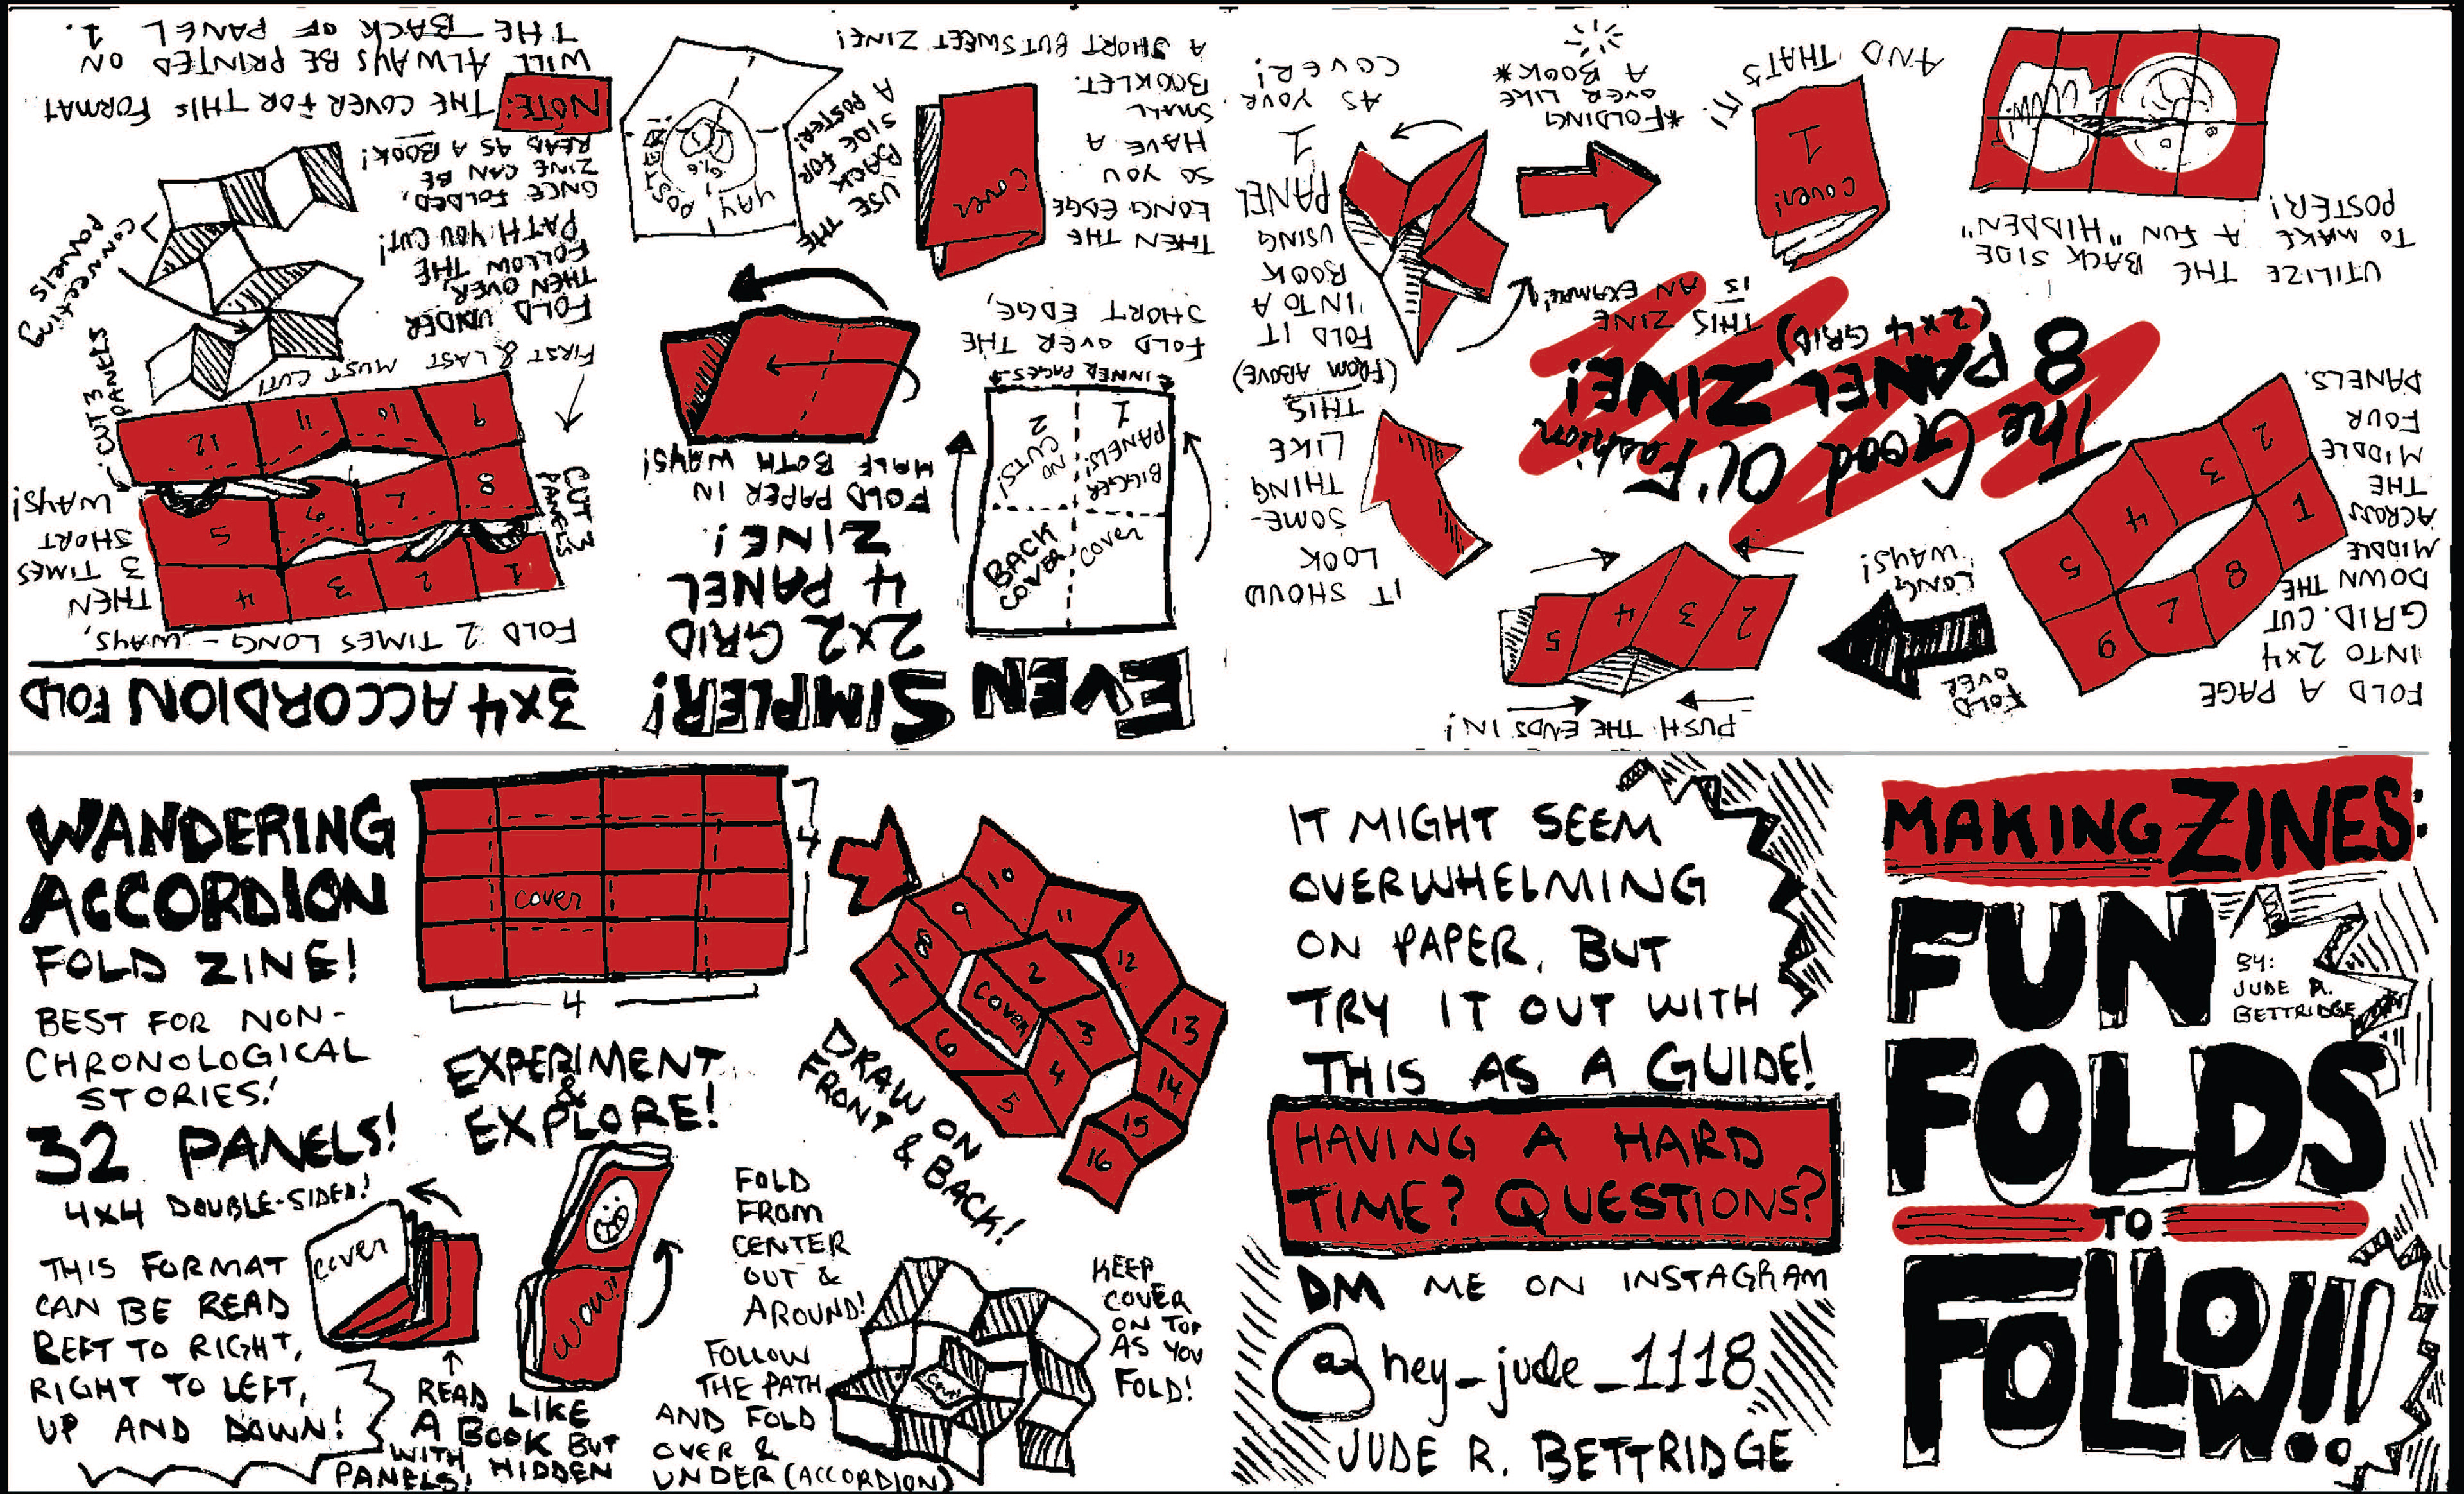 MAKING ZINES:
FUN
BY:
JUDE R.
BETTRIDGE
FOLDS
TO
FOLLOW!!
The Good Ol' Fashion
8 PANEL ZINE!
(2x4 GRID)
THIS ZINE
IS AN EXAMPLE!
FOLD A PAGE
INTO 2x4
GRID. CUT
DOWN THE
MIDDLE
ACROSS
THE
MIDDLE
FOUR
PANELS.
6
7
8
1
5
4
3
2
FOLD
OVER
LONG
WAYS!
PUSH THE ENDS IN!
5
4
3
2
IT SHOULD
LOOK
SOME-
THING
LIKE
THIS
(FROM ABOVE)
FOLD IT
INTO A
BOOK
USING
PANEL
1
AS YOUR
COVER!
*FOLDING
OVER LIKE
A BOOK*
AND THAT'S
IT!
COVER!
1
UTILIZE THE BACK SIDE
TO MAKE A FUN "HIDDEN"
POSTER!
EVEN SIMPLER!
2x2 GRID
4 PANEL
ZINE!
FOLD PAPER IN
HALF BOTH WAYS!
BACK
COVER
COVER
NO
CUTS!
2
BIGGER
PANELS!
1
INNER PAGES
FOLD OVER THE
SHORT EDGE,
THEN THE
LONG EDGE
SO YOU
HAVE A
SMALL
BOOKLET.
A SHORT BUT SWEET ZINE!
COVER
USE THE
BACK
SIDE FOR
A POSTER!
YAY!
POSTER!
3x4 ACCORDION FOLD
FOLD 2 TIMES LONG-WAYS,
THEN
3 TIMES
SHORT
WAYS!
1
2
3
4
5
6
7
8
9
10
11
12
CUT 3
PANELS
CUT 3
PANELS
FIRST & LAST MUST CUT!
FOLD UNDER
THEN OVER,
FOLLOW THE
PATH YOU CUT!
ONCE FOLDED,
ZINE CAN BE
READ AS A BOOK!
CONNECTING
PANELS
NOTE: THE COVER FOR THIS FORMAT
WILL ALWAYS BE PRINTED ON
THE BACK OF PANEL 1.
WANDERING
ACCORDION
FOLD ZINE!
BEST FOR NON-
CHRONOLOGICAL
STORIES!
32 PANELS!
4x4 DOUBLE-SIDED!
THIS FORMAT
CAN BE READ
REFT TO RIGHT,
RIGHT TO LEFT,
UP AND DOWN!
cover
4
4
EXPERIMENT
&
EXPLORE!
cover
WOW!
READ LIKE
A BOOK BUT
WITH HIDDEN
PANELS!
COVER
2
3
4
5
6
7
8
9
10
11
12
13
14
15
16
DRAW ON
FRONT & BACK!
FOLD
FROM
CENTER
OUT &
AROUND!
FOLLOW
THE PATH
AND FOLD
OVER &
UNDER (ACCORDION)
KEEP
COVER
ON TOP
AS YOU
FOLD!
IT MIGHT SEEM
OVERWHELMING
ON PAPER, BUT
TRY IT OUT WITH
THIS AS A GUIDE!
HAVING A HARD
TIME? QUESTIONS?
DM ME ON INSTAGRAM
@hey_jude_1118
JUDE R. BETTRIDGE